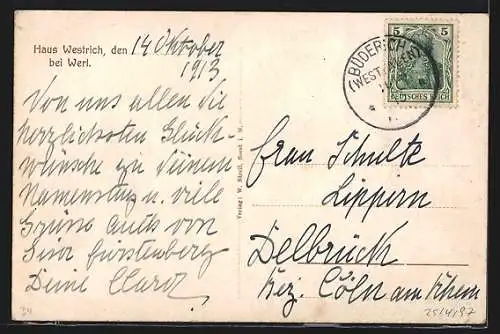 Haus Westrich, den 14 Oktober
bei Werl. 1913
Von uns allen die
herzlichsten Glück-
wünsche zu Deinem
Namenstag u. viele
Grüsse auch von
Fürstenberg
Deine Clara
5 5
DEUTSCHES REICH
BÜDERICH
(WESTFALEN)
Verlag: W. Soest i. W.
Frau Schulte
Lippern
Delbrück
Bez. Cöln am Rhein